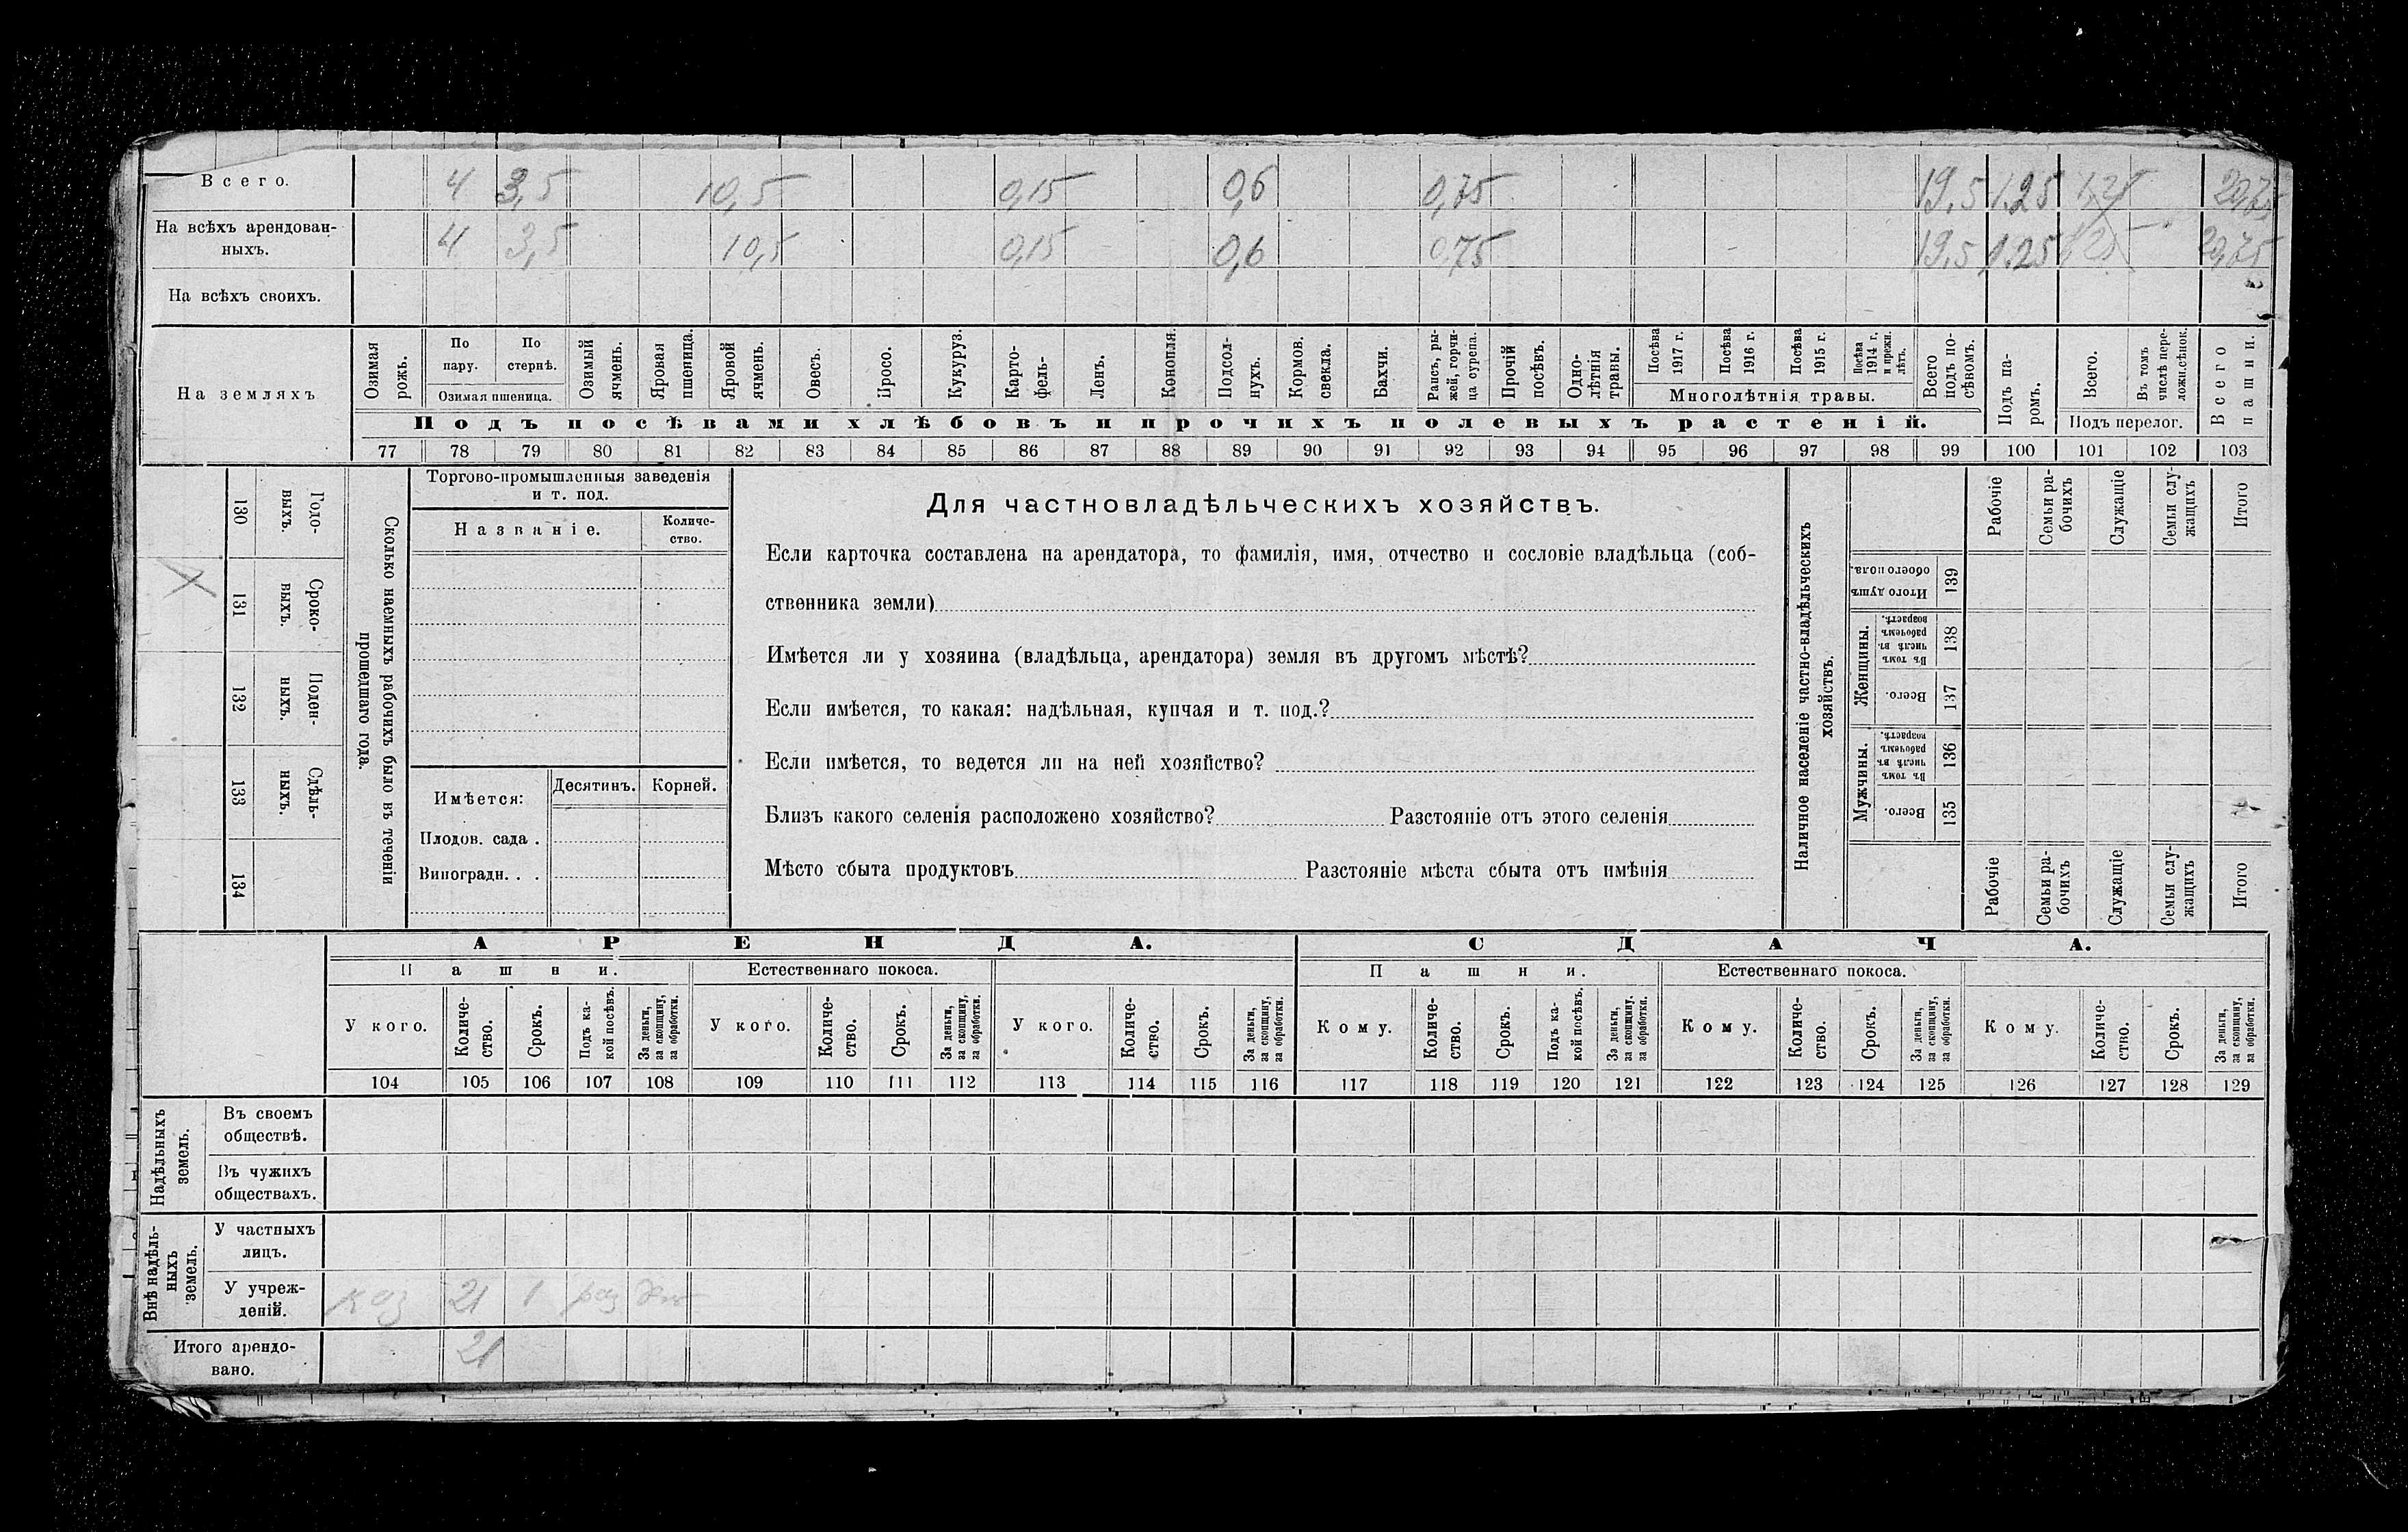 Всего. 4 3,5 10,5 0,15 0,6 0,75 19.5 1.25 1,25 20,75
На всѣхъ арендован-
ныхъ. 4 3,5 10,5 0,15 0,6 0,75 19.5 1.25 1,25 20,75
На всѣхъ своихъ.
На земляхъ
Озимая рожь.
По пару.
По стернѣ.
Озимая пшеница.
Озимый ячмень.
Яровая пшеница.
Яровой ячмень.
Овесъ.
Просо.
Кукуруз.
Карто-
фель-
Ленъ.
Конопля.
Подсол-
нухъ.
Кормов.
свекла.
Бахчи.
Рапсъ, ры-
жей, горчи-
ца сурепа.
Прочій
посѣвъ.
Одно-
лѣтнія
травы.
Посѣва
1917 г.
Посѣва
1916 г.
Посѣва
1915 г.
Посѣва
1914 г.
и прежн.
лѣтъ.
Многолѣтнія травы.
Всего
подъ по-
сѣвомъ.
Подъ па-
ромъ.
Всего.
Въ томъ
числѣ пере-
ложн.сѣнок.
Подъ перелог.
Всего
пашни.
Подъ посѣвами хлѣбовъ и прочихъ полевыхъ растеній.
77 78 79 80 81 82 83 84 85 86 87 88 89 90 91 92 93 94 95 96 97 98 99 100 101 102 103
130 Годо-
выхъ.
131 Сроко-
ныхъ.
132 Поден-
ныхъ.
133 Сдѣль-
ныхъ.
134
Сколько наемныхъ рабочихъ было въ теченіи
прошедшаго года.
Торгово-промышленныя заведенія
и т. под.
Названіе.
Количе-
ство.
Имѣется:
Десятинъ. Корней.
Плодов. сада .
Виноградн. . .
Для частновладѣльческихъ хозяйствъ.
Если карточка составлена на арендатора, то фамилія, имя, отчество и сословіе владѣльца (соб-
ственника земли)
Имѣется ли у хозяина (владѣльца, арендатора) земля въ другомъ мѣстѣ?
Если имѣется, то какая: надѣльная, купчая и т. под.?
Если имѣется, то ведется ли на ней хозяйство?
Близъ какого селенія расположено хозяйство? Разстояніе отъ этого селенія
Мѣсто сбыта продуктовъ Разстояніе мѣста сбыта отъ имѣнія
Наличное населеніе частно-владѣльческихъ
хозяйствъ.
Рабочіе
Семьи ра-
бочихъ
Служащіе
Семьи слу-
жащихъ
Итого
Итого душъ
обоего пола.
139
Женщины.
Въ томъ
числѣ въ
рабочемъ
возрастѣ.
138
Всего.
137
Мужчины.
Въ томъ
числѣ въ
рабочемъ
возрастѣ.
136
Всего.
135
Рабочіе
Семьи ра-
бочихъ
Служащіе
Семьи слу-
жащихъ
Итого
АРЕНДА. СДАЧА.
Пашни. Естественнаго покоса. Пашни. Естественнаго покоса.
У кого.
Количе-
ство.
Срокъ.
Подъ ка-
кой посѣвъ.
За деньги,
за скопщину,
за обработки.
У кого.
Количе-
ство.
Срокъ.
За деньги,
за скопщину,
за обработки.
У кого.
Количе-
ство.
Срокъ.
За деньги,
за скопщину,
за обработки.
Кому.
Количе-
ство.
Срокъ.
Подъ ка-
кой посѣвъ.
За деньги,
за скопщину,
за обработки.
Кому.
Количе-
ство.
Срокъ.
За деньги,
за скопщину,
за обработки.
Кому.
Количе-
ство.
Срокъ.
За деньги,
за скопщину,
за обработки.
104 105 106 107 108 109 110 111 112 113 114 115 116 117 118 119 120 121 122 123 124 125 126 127 128 129
Надѣльныхъ
земель.
Въ своемъ
обществѣ.
Въ чужихъ
обществахъ.
Внѣ надѣль-
ныхъ
земель.
У частныхъ
лицъ.
У учреж-
деній. каз 21 1 раз
Итого арендо-
вано. 21